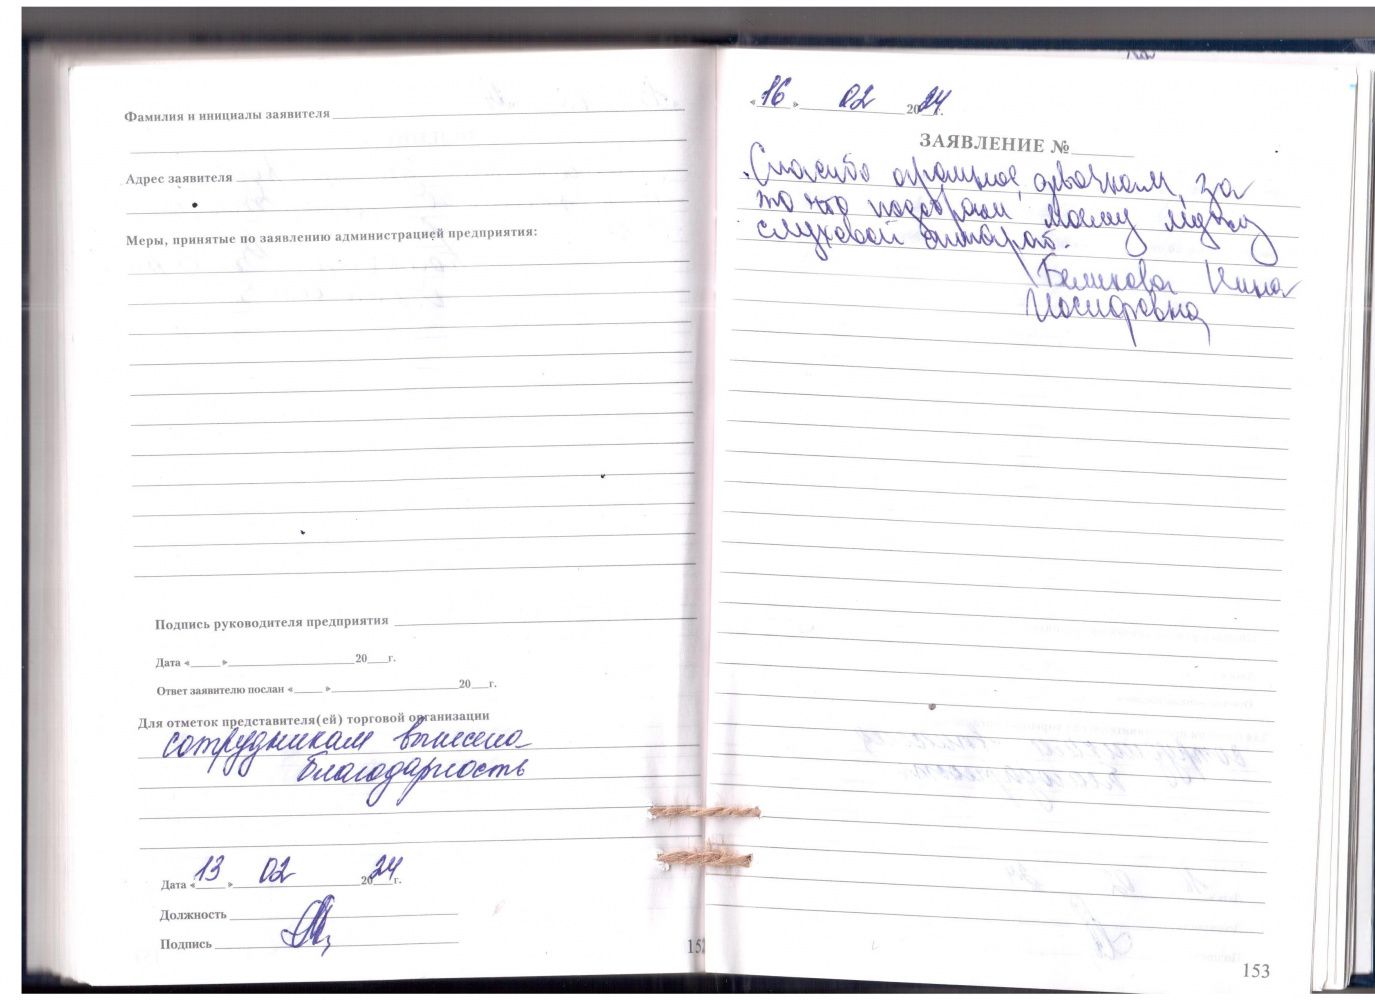 Фамилия и инициалы заявителя
Адрес заявителя
Меры, принятые по заявлению администрацией предприятия:
Подпись руководителя предприятия
Дата « » 20 г.
Ответ заявителю послан « » 20 г.
Для отметок представителя(ей) торговой организации
сотрудникам вынесена
благодарность
Дата «13» 02 2024г.
Должность
Подпись
152
«16» 02 2024г.
ЗАЯВЛЕНИЕ №
Спасибо огромное, девочкам, за
то что подобрали моему мужу
слуховой аппарат.
Беликова Нина
Иосифовна
153